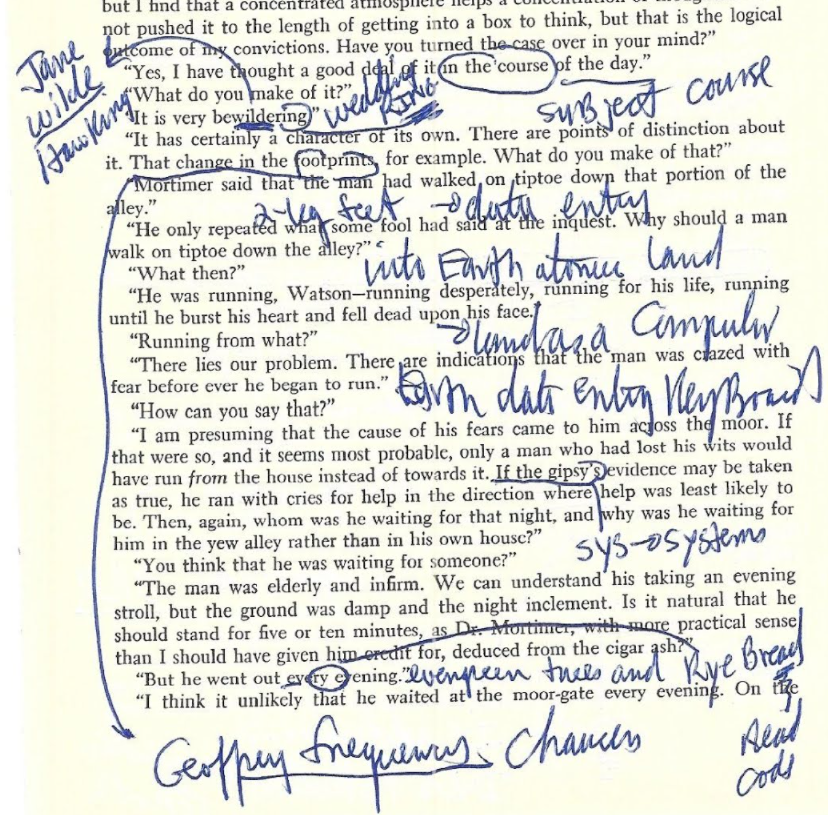 but I find that a concentrated atmosphere helps a concentration of thought.
not pushed it to the length of getting into a box to think, but that is the logical
outcome of my convictions. Have you turned the case over in your mind?”
“Yes, I have thought a good deal of it in the course of the day.”
“What do you make of it?”
“It is very bewildering.”
“It has certainly a character of its own. There are points of distinction about
it. That change in the footprints, for example. What do you make of that?”
“Mortimer said that the man had walked on tiptoe down that portion of the
alley.”
“He only repeated what some fool had said at the inquest. Why should a man
walk on tiptoe down the alley?”
“What then?”
“He was running, Watson—running desperately, running for his life, running
until he burst his heart and fell dead upon his face.”
“Running from what?”
“There lies our problem. There are indications that the man was crazed with
fear before ever he began to run.”
“How can you say that?”
“I am presuming that the cause of his fears came to him across the moor. If
that were so, and it seems most probable, only a man who had lost his wits would
have run from the house instead of towards it. If the gipsy's evidence may be taken
as true, he ran with cries for help in the direction where help was least likely to
be. Then, again, whom was he waiting for that night, and why was he waiting for
him in the yew alley rather than in his own house?”
“You think that he was waiting for someone?”
“The man was elderly and infirm. We can understand his taking an evening
stroll, but the ground was damp and the night inclement. Is it natural that he
should stand for five or ten minutes, as Dr. Mortimer, with more practical sense
than I should have given him credit for, deduced from the cigar ash?”
“But he went out every evening.”
“I think it unlikely that he waited at the moor-gate every evening. On the
Jane
Wilde
Hawking
wedding
RING
subject course
2-leg feet → data entry
into Earth atomic land
→ land as a Computer
Earth data entry KeyBoard
sys → systems
evergreen trees and Rye Bread
Read
code
Geoffrey frequency Chaucer